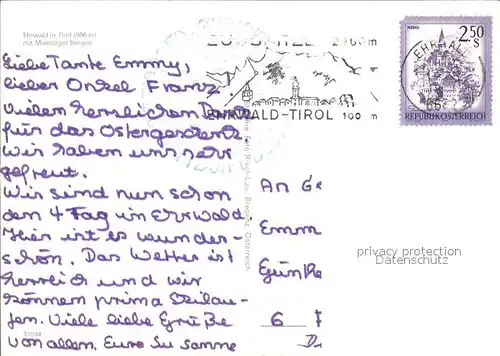 Ehrwald in Tirol (996 m)
mit Mieminger Bergen
ZUGSPITZE 2966 m
EHRWALD-TIROL 1000 m
EHRWALD
2.50
S
REPUBLIK ÖSTERREICH
Liebe Tante Emmy,
lieber Onkel Franz
Vielen herzlichen Dank
für das Ostergeschenk
Wir haben uns sehr
gefreut.
Wir sind nun schon
den 4 Tag in Ehrwald.
Hier ist es wunder-
schön. Das Wetter ist
herrlich und wir
können prima Skilau-
fen. Viele liebe Grüße
von allen. Eure Su sanne
Risch-Lau, Bregenz, Österreich
An Ge
Emm
Günthe
6
privacy protection
Datenschutz